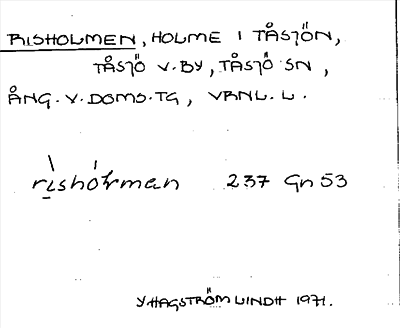 RISHOLMEN, HOLME I TÅSJÖN,
TÅSJÖ V. BY, TÅSJÖ SN,
ÅNG. V. DOMS. TG, VRNL. L.
rishólman 237 Gn 53
Y HAGSTRÖM LINDH 1971.